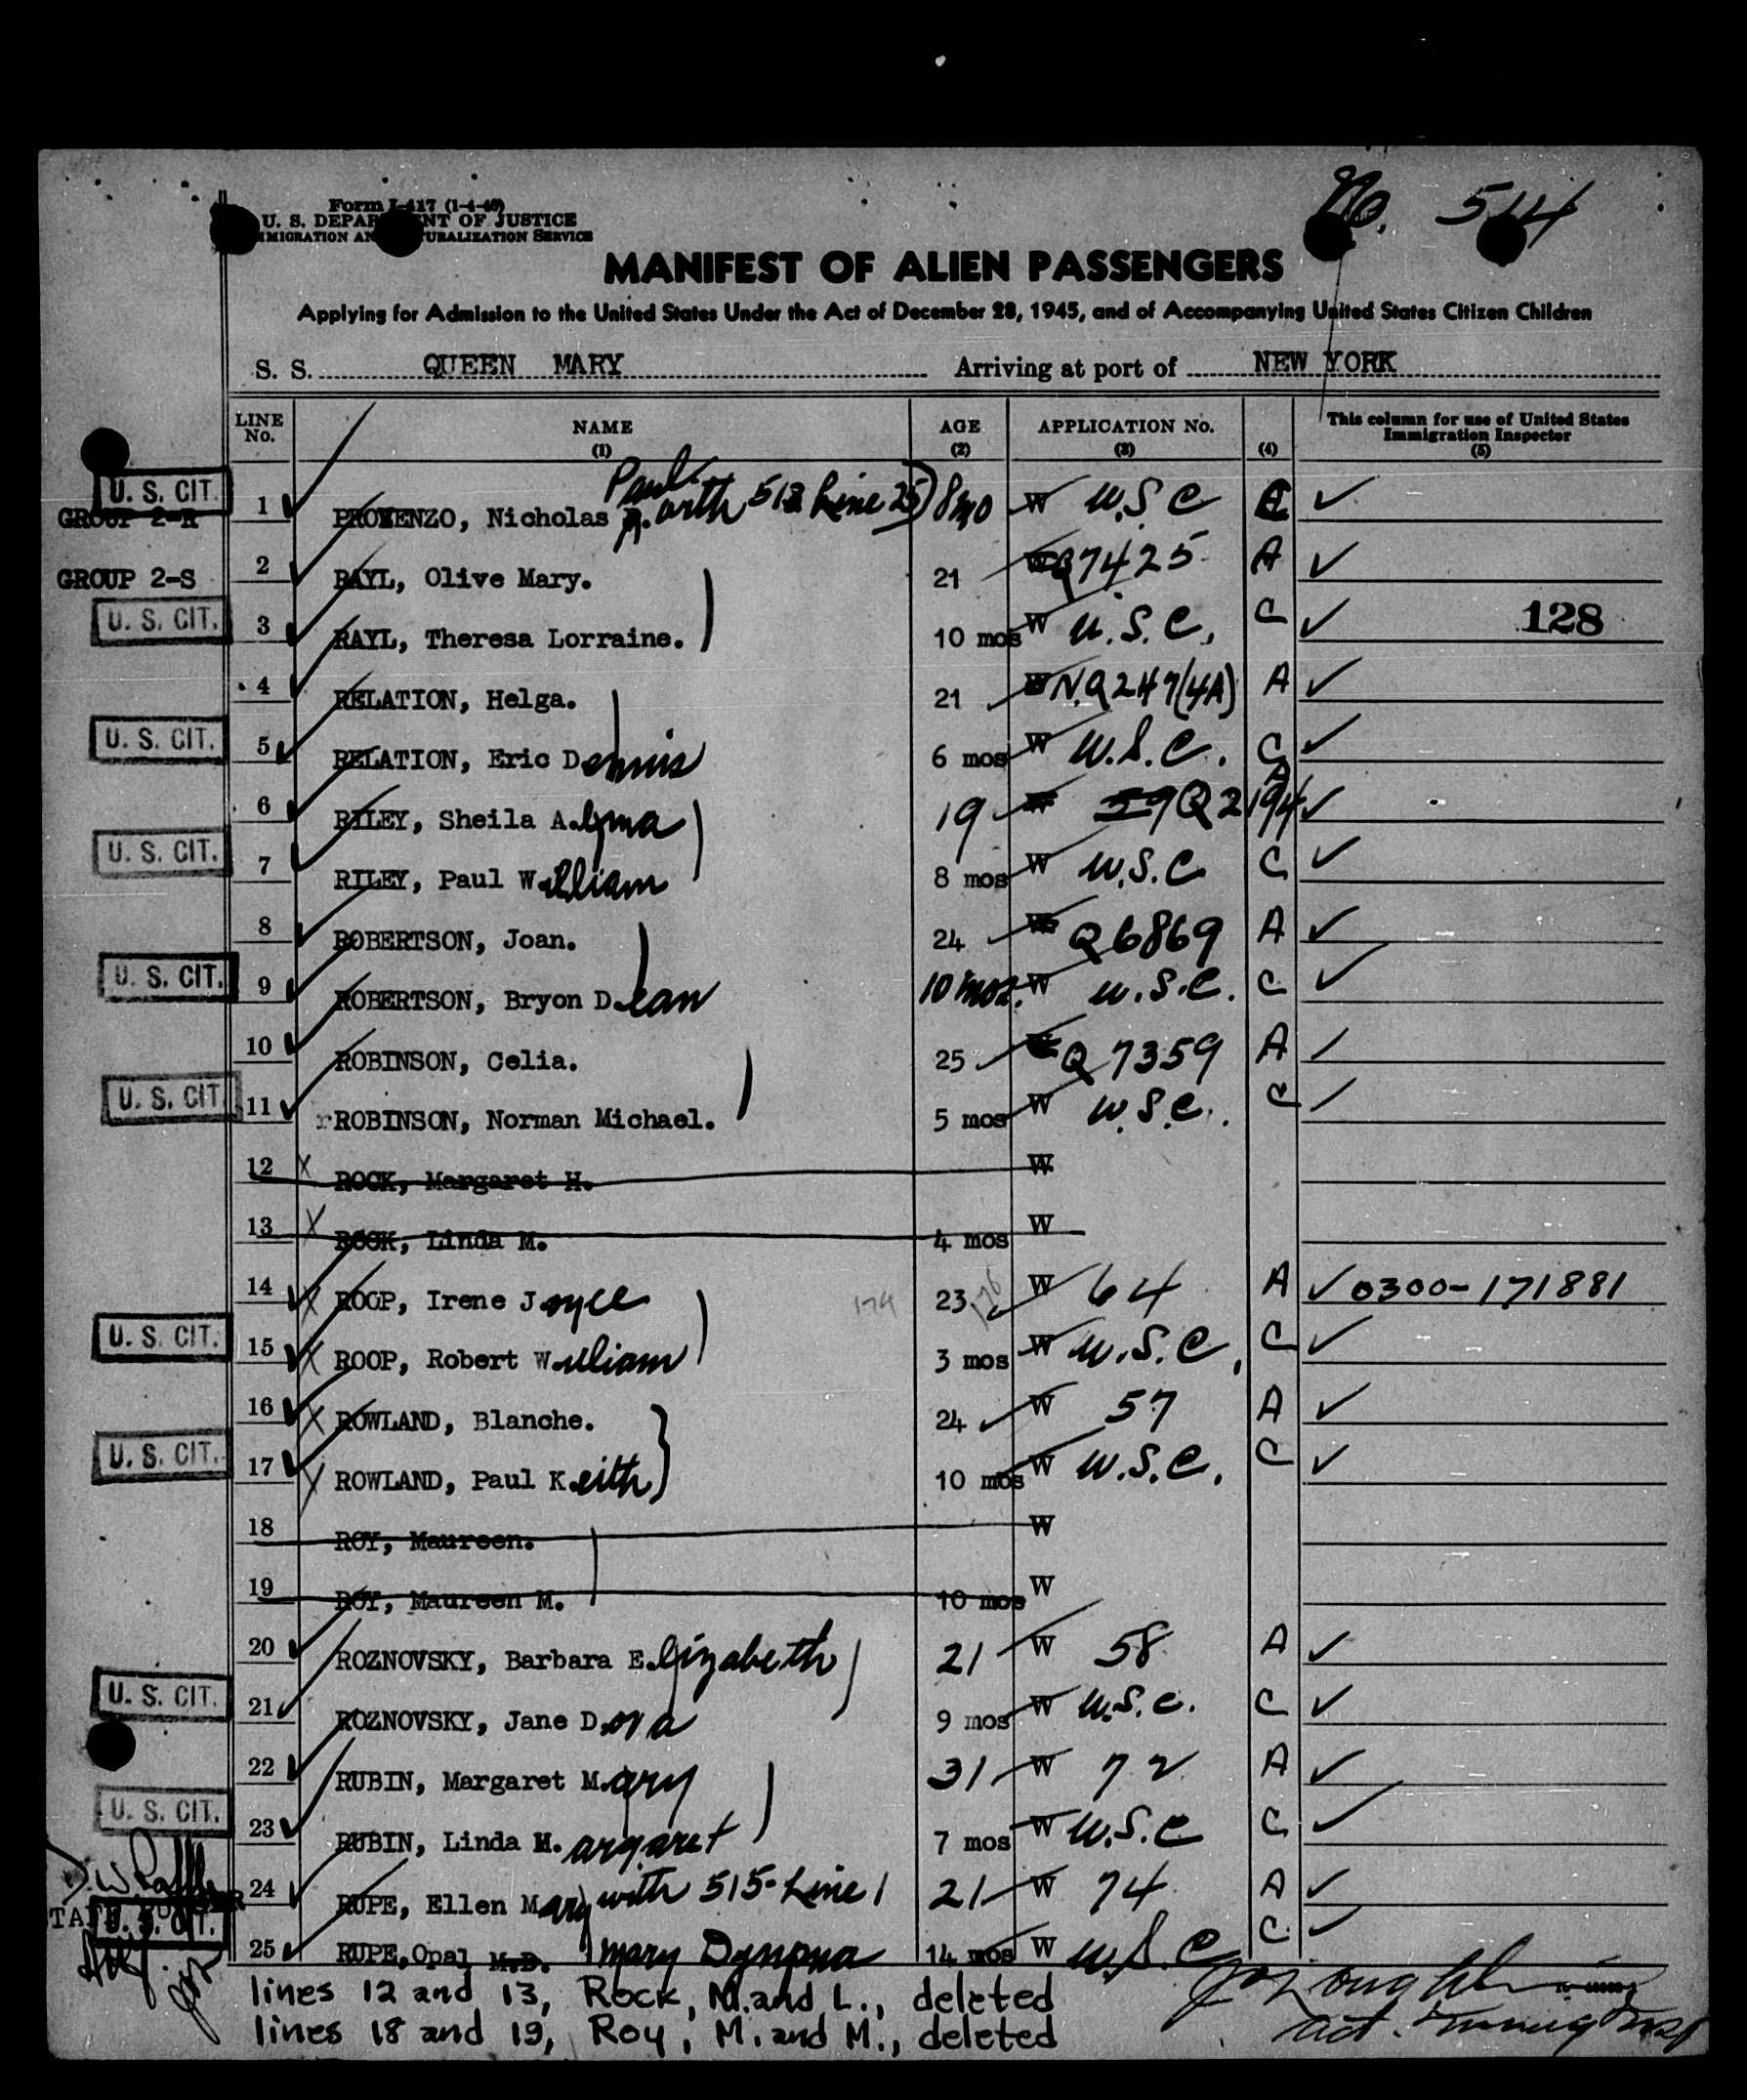 No. 514
Form I-417 (1-4-46)
U. S. DEPARTMENT OF JUSTICE
IMMIGRATION AND NATURALIZATION SERVICE
MANIFEST OF ALIEN PASSENGERS
Applying for Admission to the United States Under the Act of December 28, 1945, and of Accompanying United States Citizen Children
S. S. QUEEN MARY Arriving at port of NEW YORK
LINE No. NAME (1) AGE (2) APPLICATION No. (3) (4) This column for use of United States Immigration Inspector (5)
U. S. CIT. GROUP 2-R 1 PROVENZO, Nicholas Paul with 513 Line 25) 8 mo W U.S.C C ✓
GROUP 2-S 2 RAYL, Olive Mary. 21 W Q7425 A ✓
U. S. CIT. 3 RAYL, Theresa Lorraine. 10 mos W U.S.C. C ✓ 128
4 RELATION, Helga. 21 W NQ247(4A) A ✓
U. S. CIT. 5 RELATION, Eric Dennis 6 mos W U.S.C. C ✓
6 RILEY, Sheila A. 19 W 59 Q2194 A ✓
U. S. CIT. 7 RILEY, Paul William 8 mos W U.S.C C ✓
8 ROBERTSON, Joan. 24 W Q6869 A ✓
U. S. CIT. 9 ROBERTSON, Bryon Dean 10 mos. W U.S.C. C ✓
10 ROBINSON, Celia. 25 W Q7359 A ✓
U. S. CIT. 11 rROBINSON, Norman Michael. 5 mos W U.S.C. C ✓
12 X ROCK, Margaret H. W
13 X ROCK, Linda M. 4 mos W
14 X ROOP, Irene Joyce 174 23 176 W 64 A ✓ 0300-171881
U. S. CIT. 15 X ROOP, Robert William 3 mos W U.S.C. C ✓
16 X ROWLAND, Blanche. 24 W 57 A ✓
U. S. CIT. 17 X ROWLAND, Paul Keith 10 mos W U.S.C. C ✓
18 ROY, Maureen. W
19 ROY, Maureen M. 10 mos W
20 ROZNOVSKY, Barbara E.lizabeth 21 W 58 A ✓
U. S. CIT. 21 ROZNOVSKY, Jane D.ora 9 mos W U.S.C. C ✓
22 RUBIN, Margaret M.ary 31 W 72 A ✓
U. S. CIT. 23 RUBIN, Linda M.argaret 7 mos W U.S.C C ✓
24 RUPE, Ellen Mary with 515-Line 1 21 W 74 A ✓
U. S. CIT. 25 RUPE, Opal M.D. Mary 14 mos W U.S.C C ✓
lines 12 and 13, Rock, M. and L., deleted
lines 18 and 19, Roy, M. and M., deleted